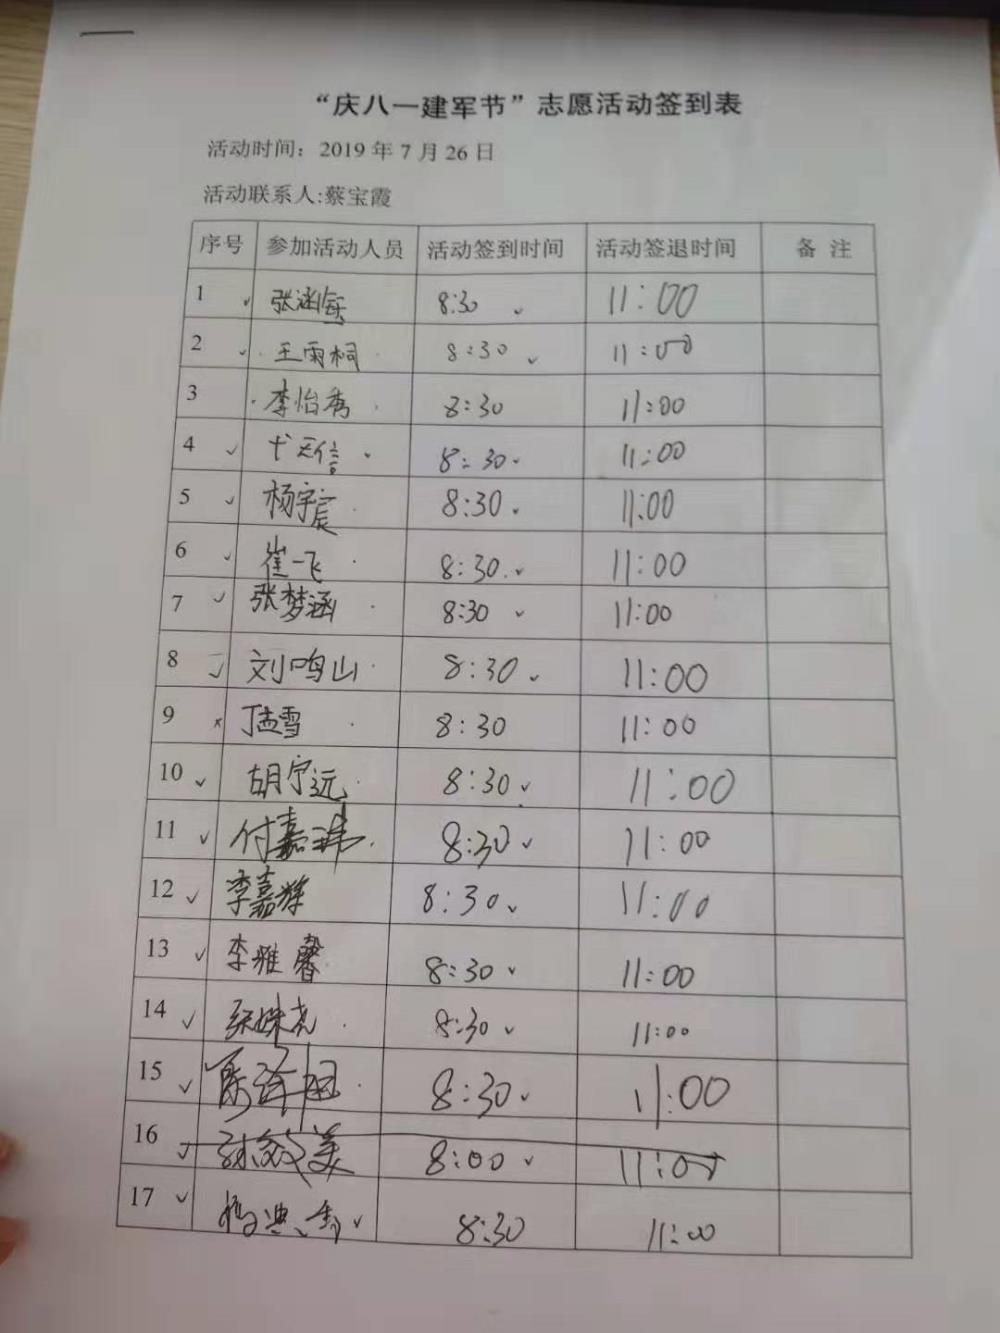 “庆八一建军节”志愿活动签到表
活动时间：2019 年 7 月 26 日
活动联系人:蔡宝霞
序号 参加活动人员 活动签到时间 活动签退时间 备 注
1 8:30 11:00
2 王雨桐 8:30 11:00
3 李怡秀 8:30 11:00
4 8:30 11:00
5 杨宇宸 8:30 11:00
6 崔一飞 8:30 11:00
7 张梦涵 8:30 11:00
8 刘鸣山 8:30 11:00
9 丁孟雪 8:30 11:00
10 胡宁远 8:30 11:00
11 付嘉玮 8:30 11:00
12 李嘉辉 8:30 11:00
13 李雅馨 8:30 11:00
14 8:30 11:00
15 8:30 11:00
16 8:00 11:00
17 8:30 11:00